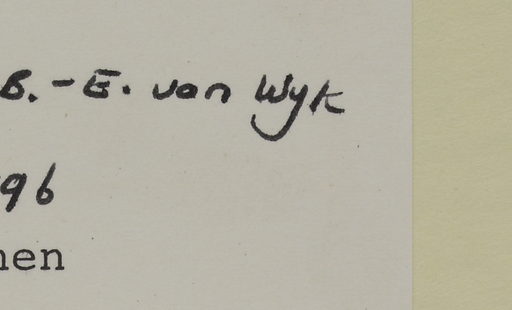 B.-E. van Wyk
96
nen